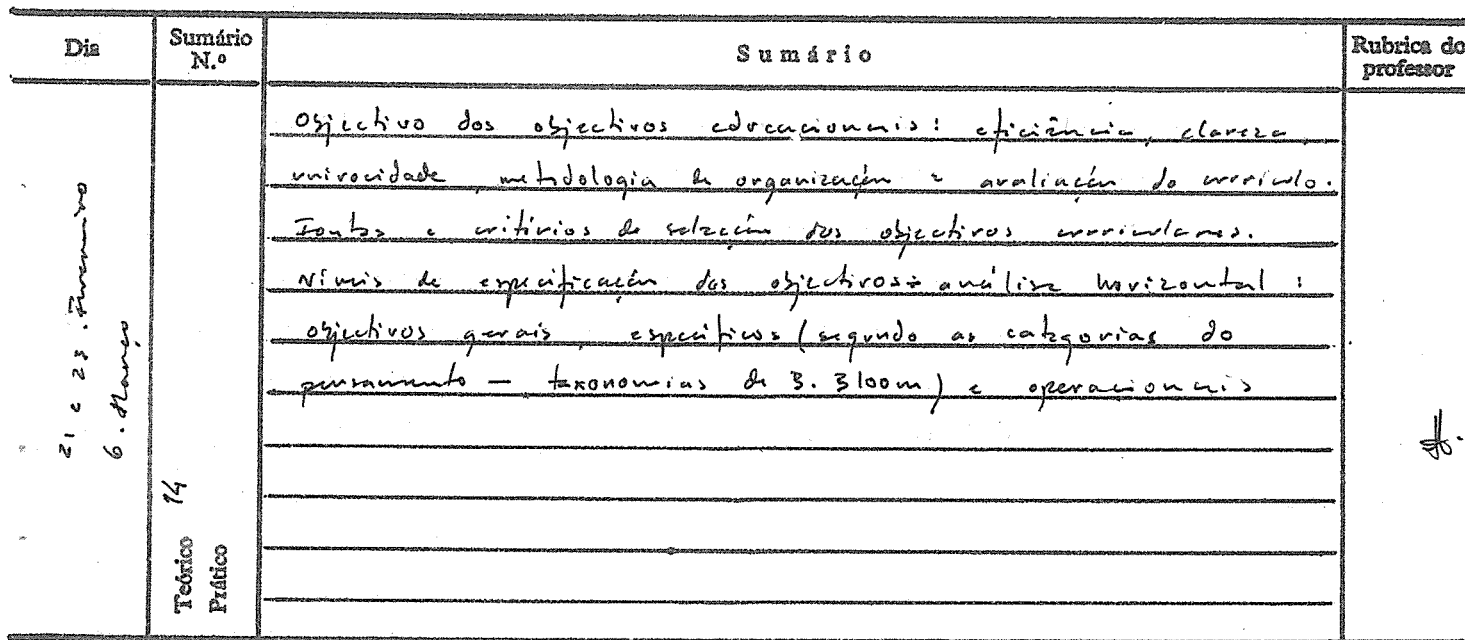 Dia
Sumário N.º
Sumário
Rubrica do professor
Objectivo dos objectivos educacionais: eficiência, clareza
univocidade, metodologia de organização e avaliação do currículo.
Fontes e critérios de selecção dos objectivos curriculares.
Níveis de especificação dos objectivos: análise horizontal:
objectivos gerais, específicos (segundo as categorias do
pensamento — taxonomias de B. Bloom) e operacionais
21 e 23. Fevereiro
6. Março
14
Teórico
Prático